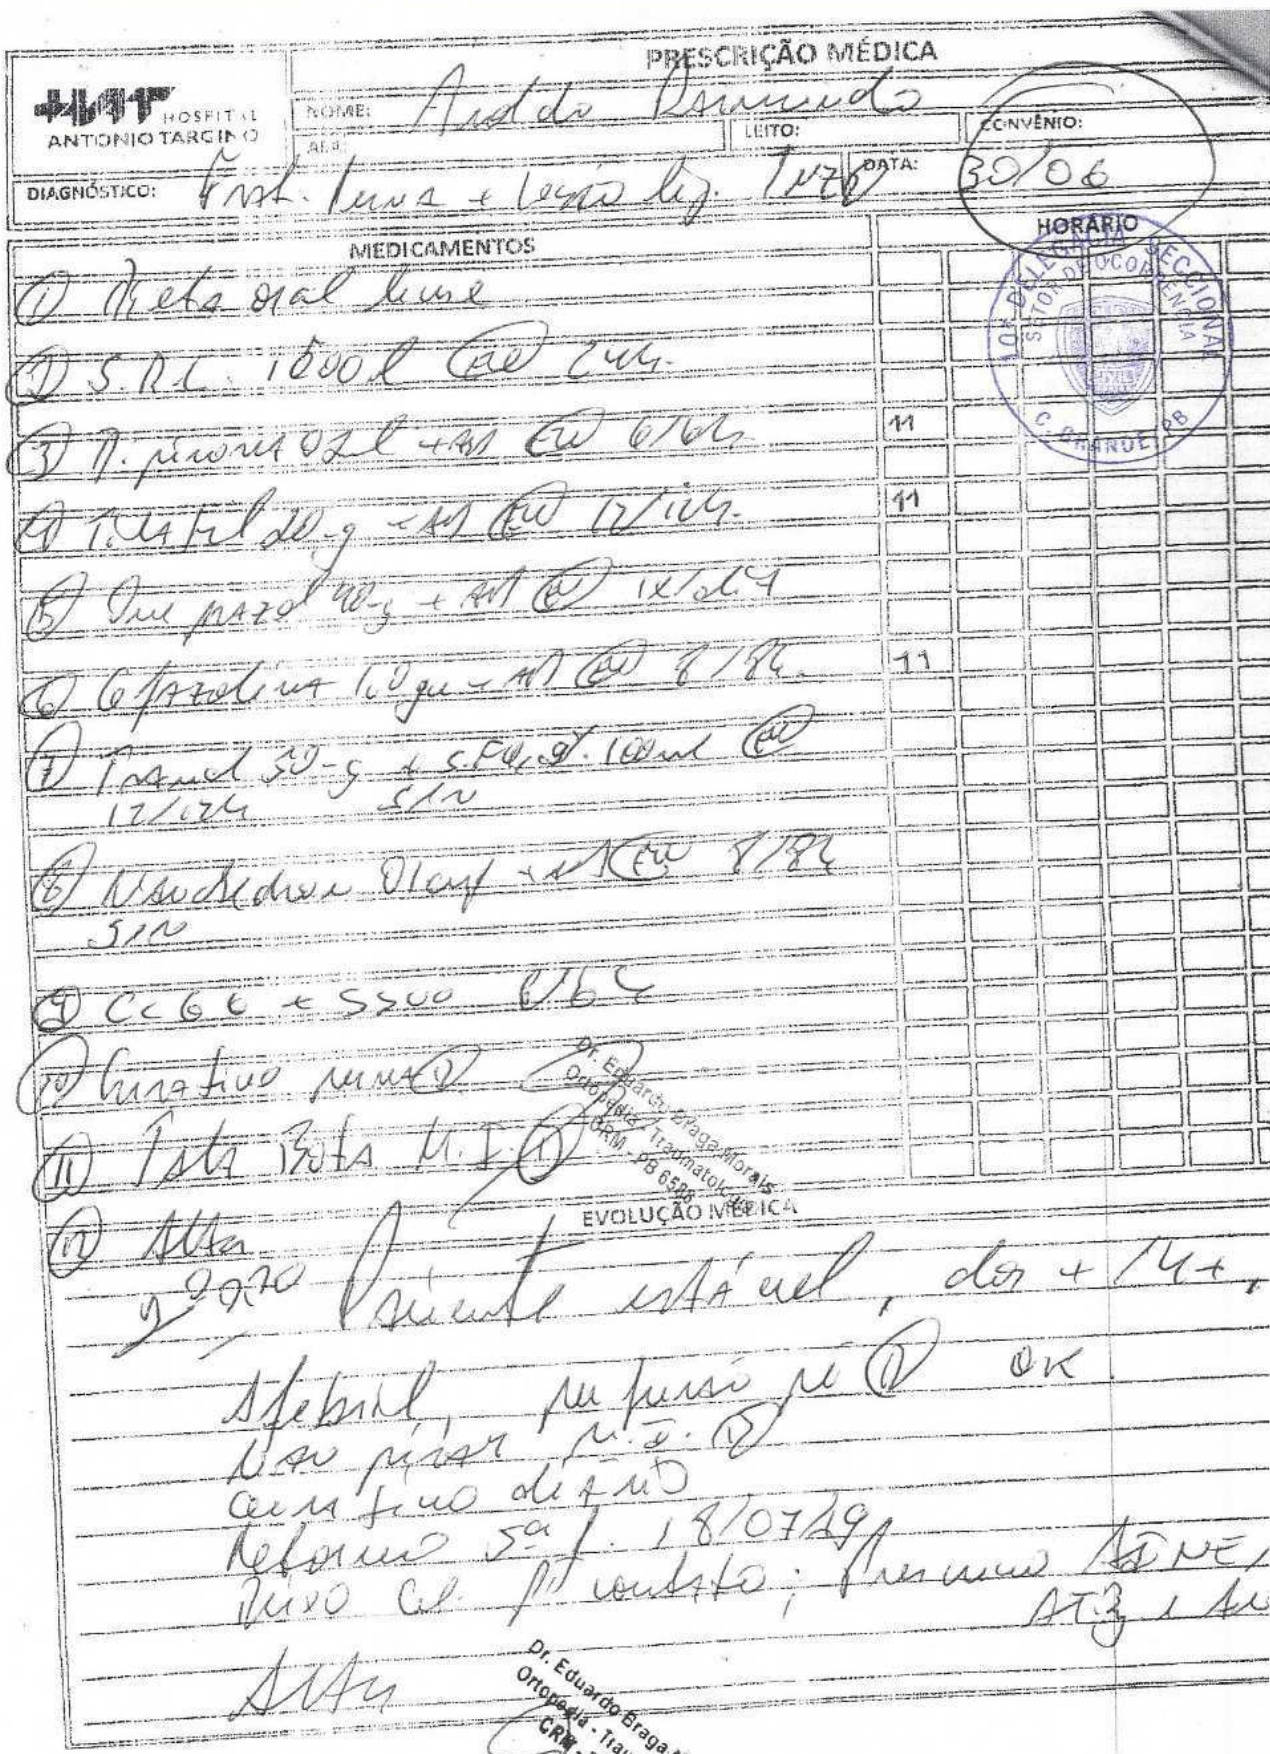 PRESCRIÇÃO MÉDICA
HAT HOSPITAL
ANTONIO TARGINO
NOME:
LEITO:
CONVÊNIO:
DIAGNÓSTICO: Frat. Perna + Lesão lig.
DATA: 30/06
MEDICAMENTOS
HORÁRIO
10ª DELEGACIA SECCIONAL
SETOR DE OCORRENCIA
C. GRANDE PB
① Dieta oral livre
② S.R.L. 1500 l EV 24h.
③ Dipirona 02 l + AD EV 6/6h 11
④ Tilatil 20 g + AD EV 12/12h. 11
⑤ Omeprazol 40 g + AD EV 1x/dia
⑥ Cefazolina 1,0 g + AD EV 8/8h. 11
⑦ Tramal 50 g + S.F 0,9% 100ml EV
12/12h S/N
⑧ Nausedron 01 amp + AD EV 8/8h
S/N
⑨ CCGG + SSVV 6/6h
⑩ Curativo perna D
⑪ Tala Bota M.I. D
Dr. Eduardo Braga Morais
Ortopedia - Traumatologia
CRM - PB
⑫ Alta
EVOLUÇÃO MÉDICA
Paciente estável, dor + /4+,
Afebril, perfusão pé D OK
Não pisar M.I. D
Curativo diário
Retorno 5ª f. 18/07/19
Deixo Cel. p/ contato; Prescrevo AINE,
ATB
Alta
Dr. Eduardo Braga
Ortopedia
CRM